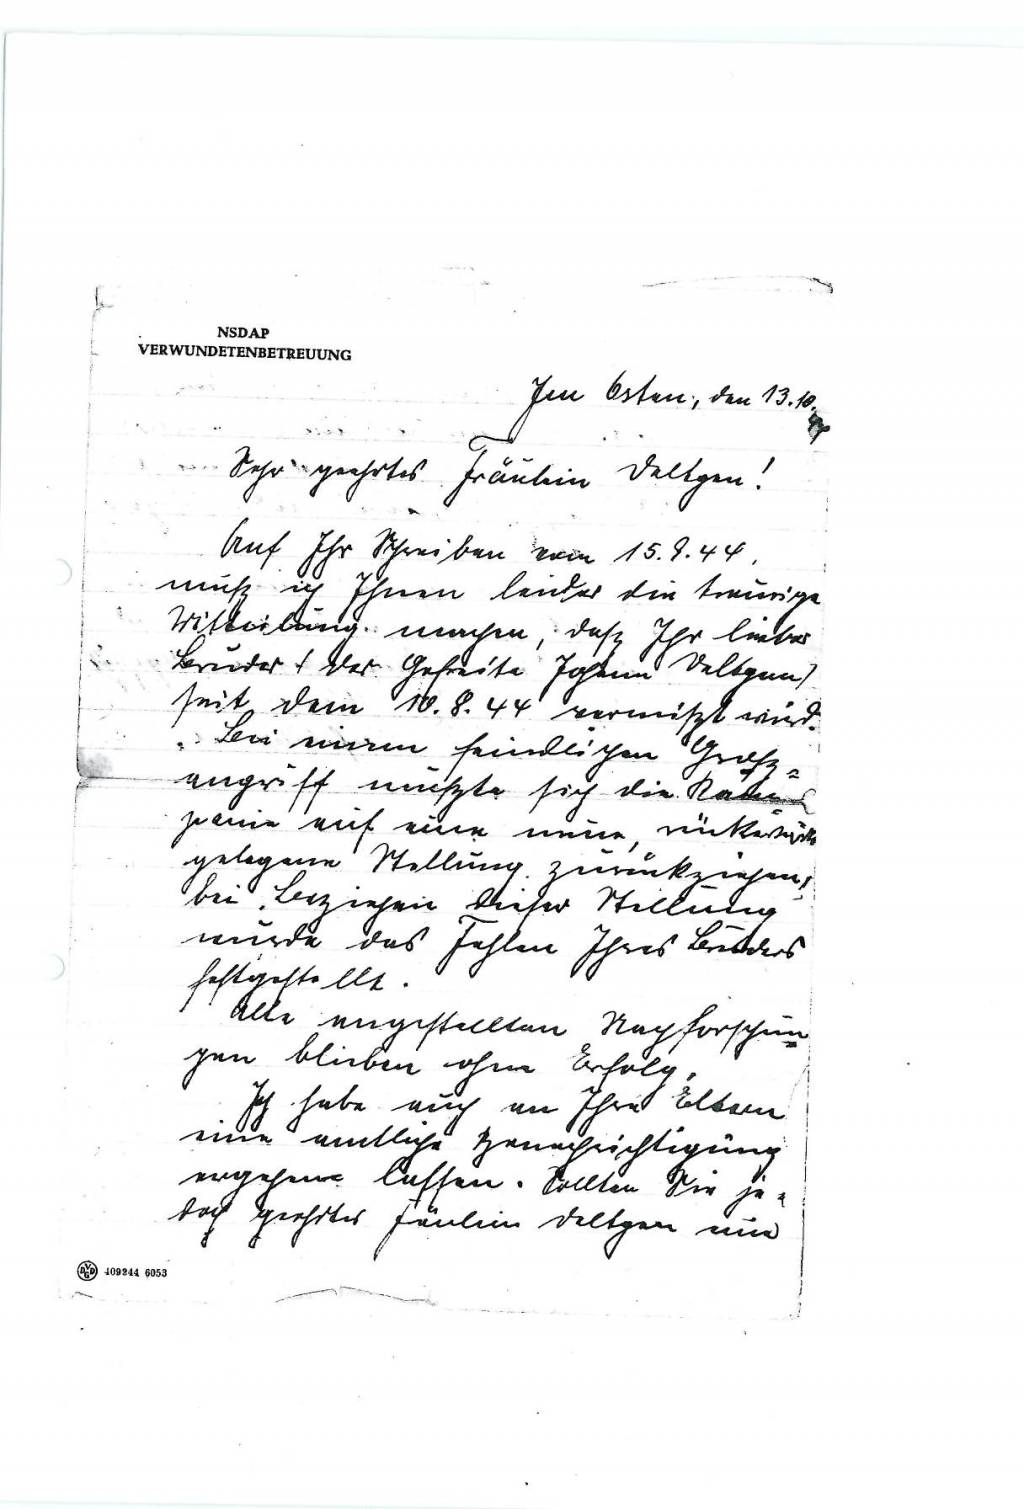 NSDAP
VERWUNDETENBETREUUNG
Im Osten, den 13.10.
44
Sehr geehrtes Fräulein Deltgen!
Auf Ihr Schreiben vom 15.9.44.
muß ich Ihnen leider die traurige
Mitteilung machen, daß Ihr lieber
Bruder (der Gefreite Johann Deltgen)
seit dem 10.8.44 vermißt wird.
Bei einem feindlichen Groß=
angriff mußte sich die Kom=
panie auf eine neue, rückwärts
gelegene Stellung zurückziehen,
bei Beziehen dieser Stellung
wurde das Fehlen Ihres Bruders
festgestellt.
Alle angestellten Nachforschun=
gen blieben ohne Erfolg.
Ich habe auch an Ihre Eltern
eine amtliche Benachrichtigung
ergehen lassen. Sollten Sie je=
doch geehrtes Fräulein Deltgen nun
DVGD 409244 6053